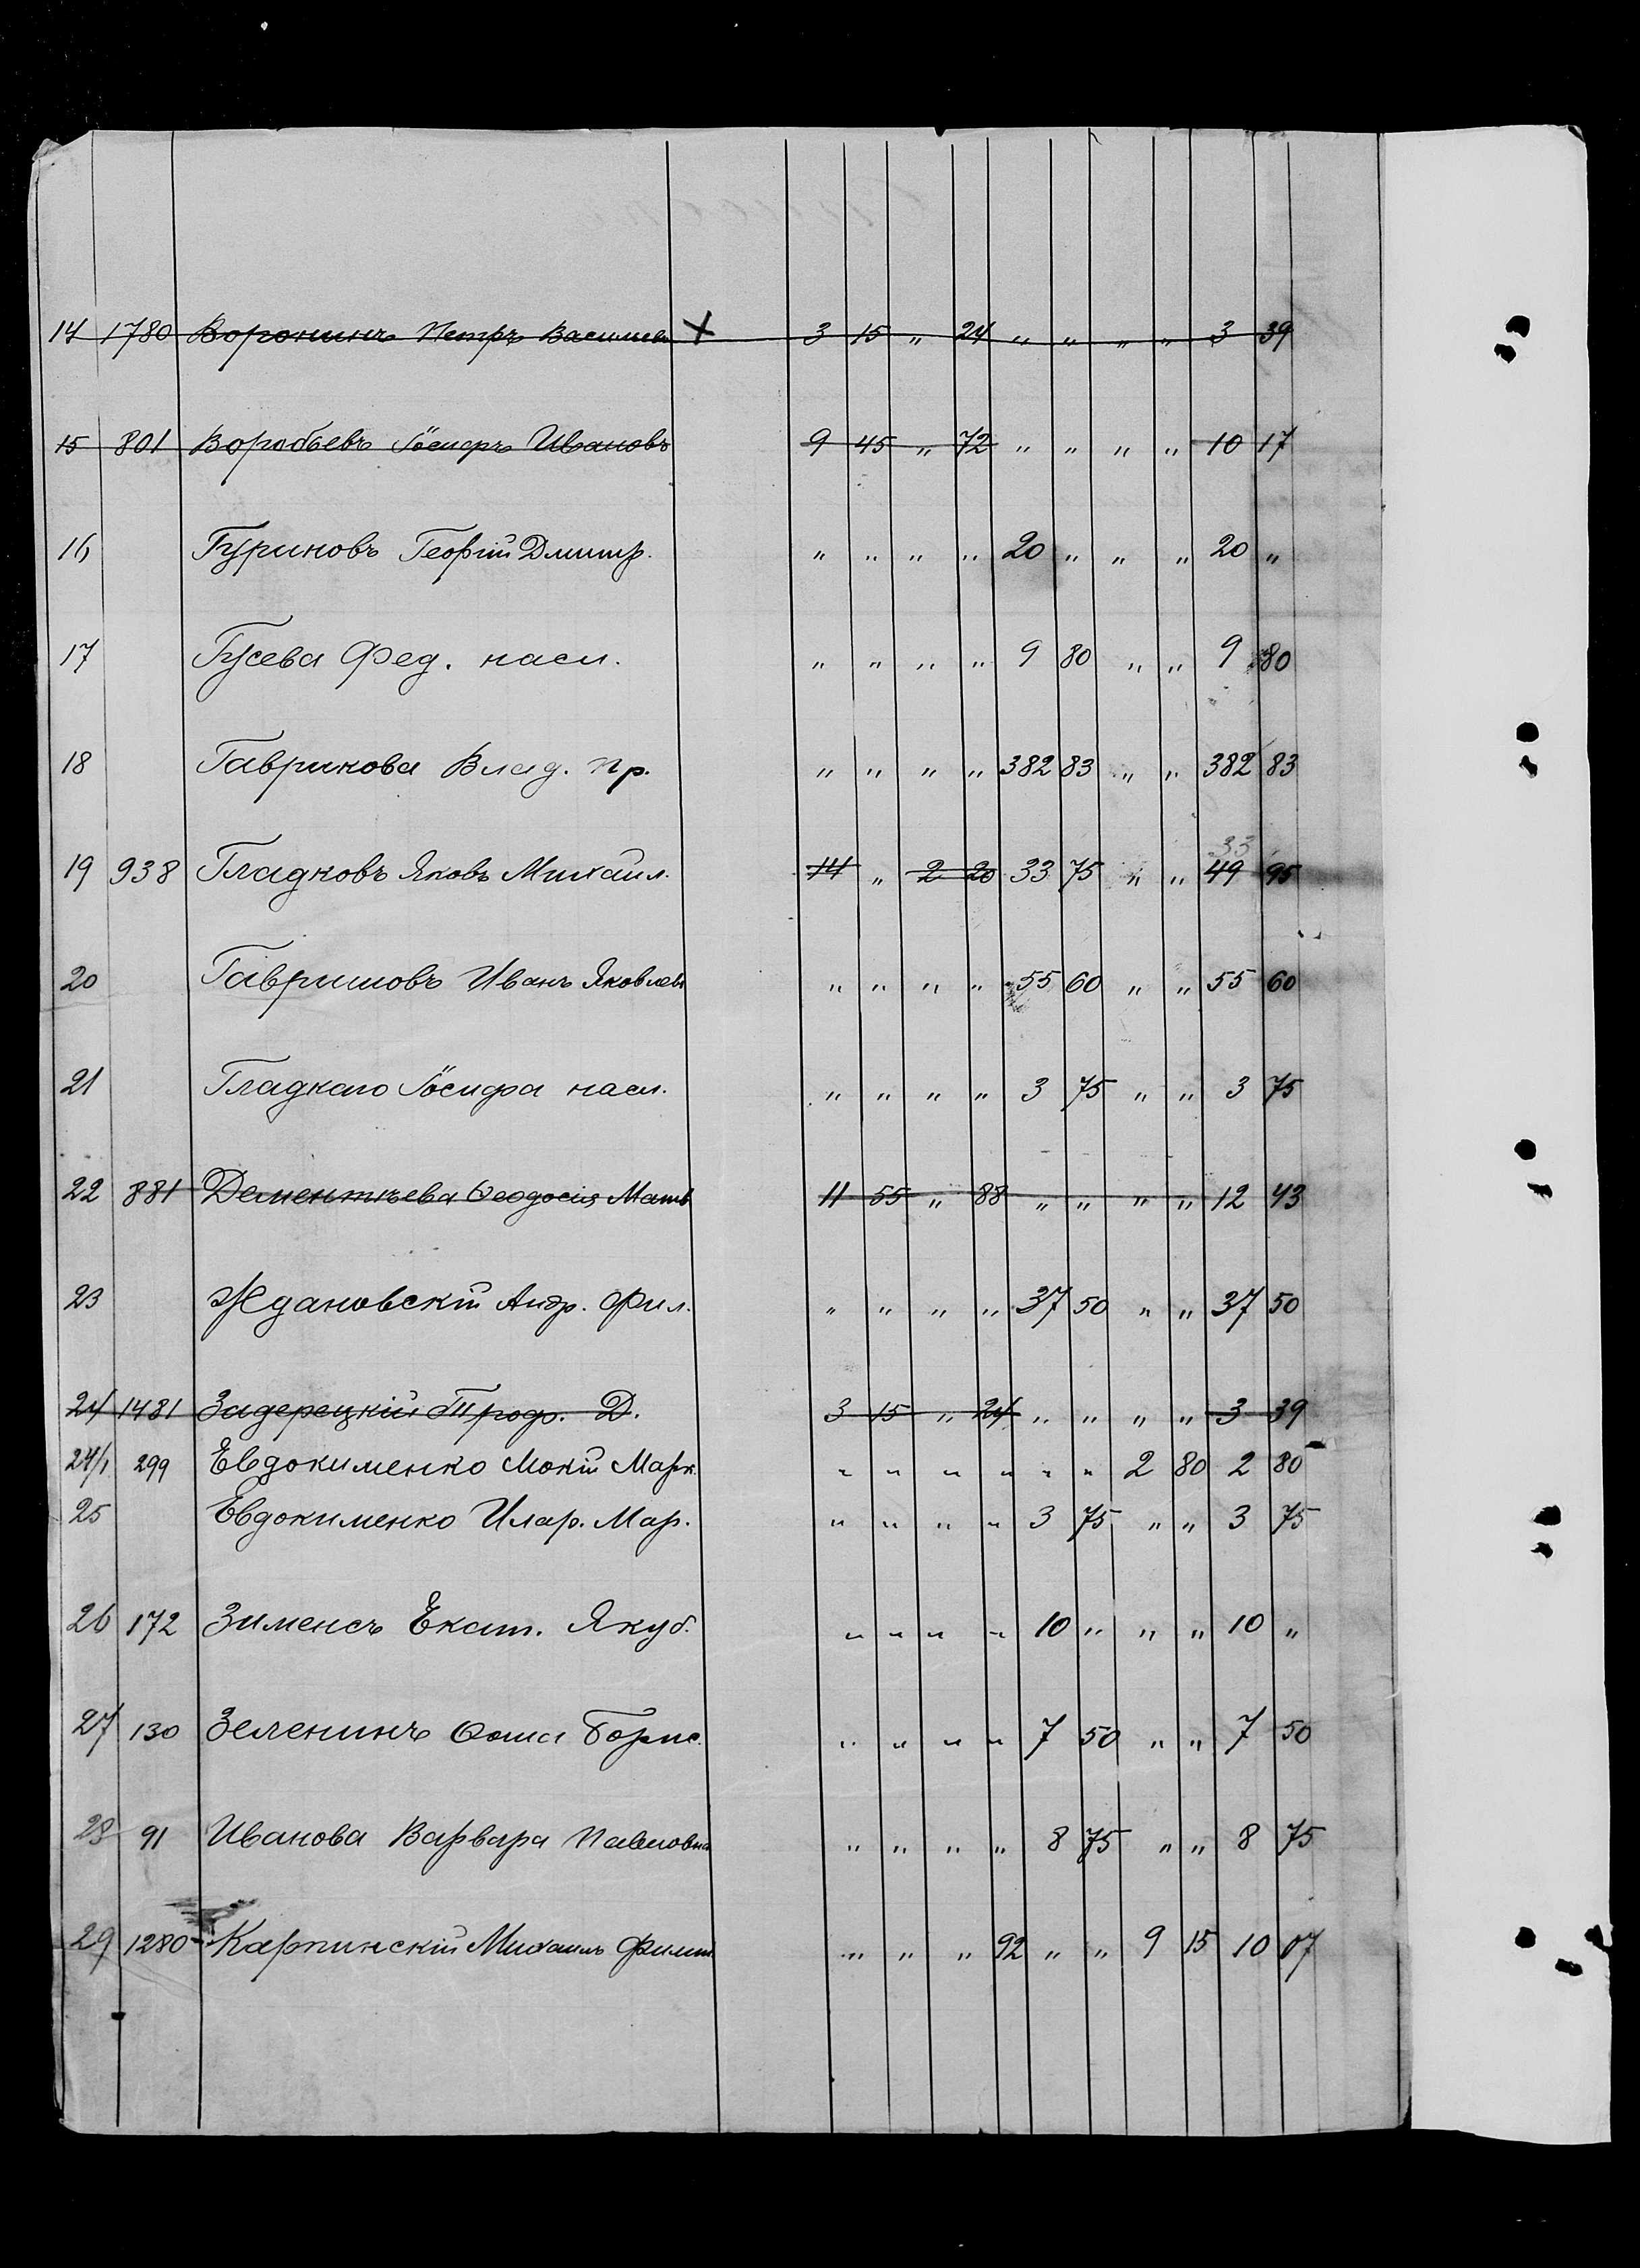 14 1780 Воронинъ Петръ Васильев X 3 15 „ 24 „ „ „ „ 3 39
15 801 Воробьевъ Іосифъ Ивановъ 9 45 „ 72 „ „ „ „ 10 17
16 Гуриновъ Георгій Дмитр. „ „ „ „ 20 „ „ „ 20 „
17 Гусева Фед. насл. „ „ „ „ 9 80 „ „ 9 80
18 Гаврикова Влад. пр. „ „ „ „ 382 83 „ „ 382 83
33
19 938 Гладковъ Яковъ Михаил. 14 „ 2 20 33 75 „ „ 49 95
20 Гавришовъ Иванъ Яковлев „ „ „ „ 55 60 „ „ 55 60
21 Гладкаго Іосифа насл. „ „ „ „ 3 75 „ „ 3 75
22 881 Дементьева Ѳеодосія Матв 11 55 „ 88 „ „ „ „ 12 43
23 Ждановскій Андр. Фил. „ „ „ „ 37 50 „ „ 37 50
24 1481 Задерецкій Троф. Д. 3 15 „ 24 „ „ „ „ 3 39
24/1 299 Евдокименко Мокій Марк. „ „ „ „ „ „ 2 80 2 80
25 Евдокименко Илар. Мар. „ „ „ „ 3 75 „ „ 3 75
26 172 Зименсъ Екат. Якуб. „ „ „ „ 10 „ „ „ 10 „
27 130 Зеленинъ Ѳома Борис. „ „ „ „ 7 50 „ „ 7 50
28 91 Иванова Варвара Павловна „ „ „ „ 8 75 „ „ 8 75
29 1280 Карпинскій Михаилъ Филип „ „ „ 92 „ „ 9 15 10 07